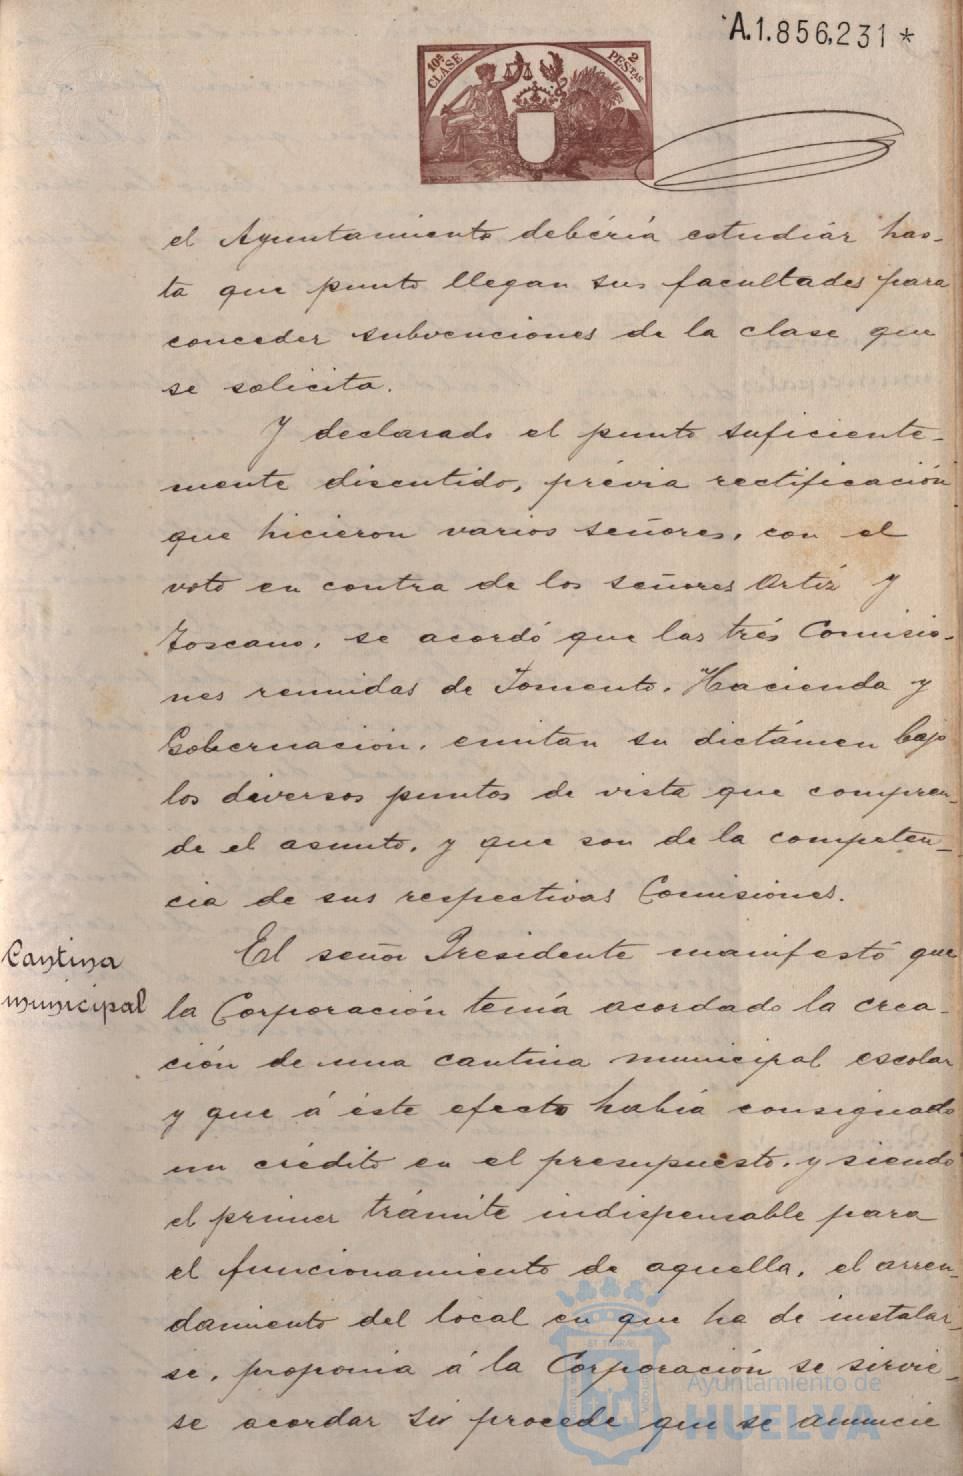 A.1.856,231 *
10ª CLASE
2 PESTAS
el Ayuntamiento debería estudiar has-
ta que punto llegan sus facultades para
conceder subvenciones de la clase que
se solicita.
Y declarado el punto suficiente-
mente discutido, prévia rectificación
que hicieron varios señores, con el
voto en contra de los señores Ortiz y
Toscano, se acordó que las trés Comisio-
nes reunidas de Fomento, Hacienda y
Gobernación, emitan su dictámen bajo
los diversos puntos de vista que compren-
de el asunto, y que son de la competen-
cia de sus respectivas Comisiones.
Cantina
municipal
El señor Presidente manifestó que
la Corporación tenía acordado la crea-
ción de una cantina municipal escolar
y que á éste efecto había consignado
un crédito en el presupuesto, y siendo
el primer trámite indispensable para
el funcionamiento de aquella, el arren-
damiento del local en que ha de instalar-
se, proponía á la Corporación se sirvie-
se acordar si procede que se anuncie
Ayuntamiento de
HUELVA